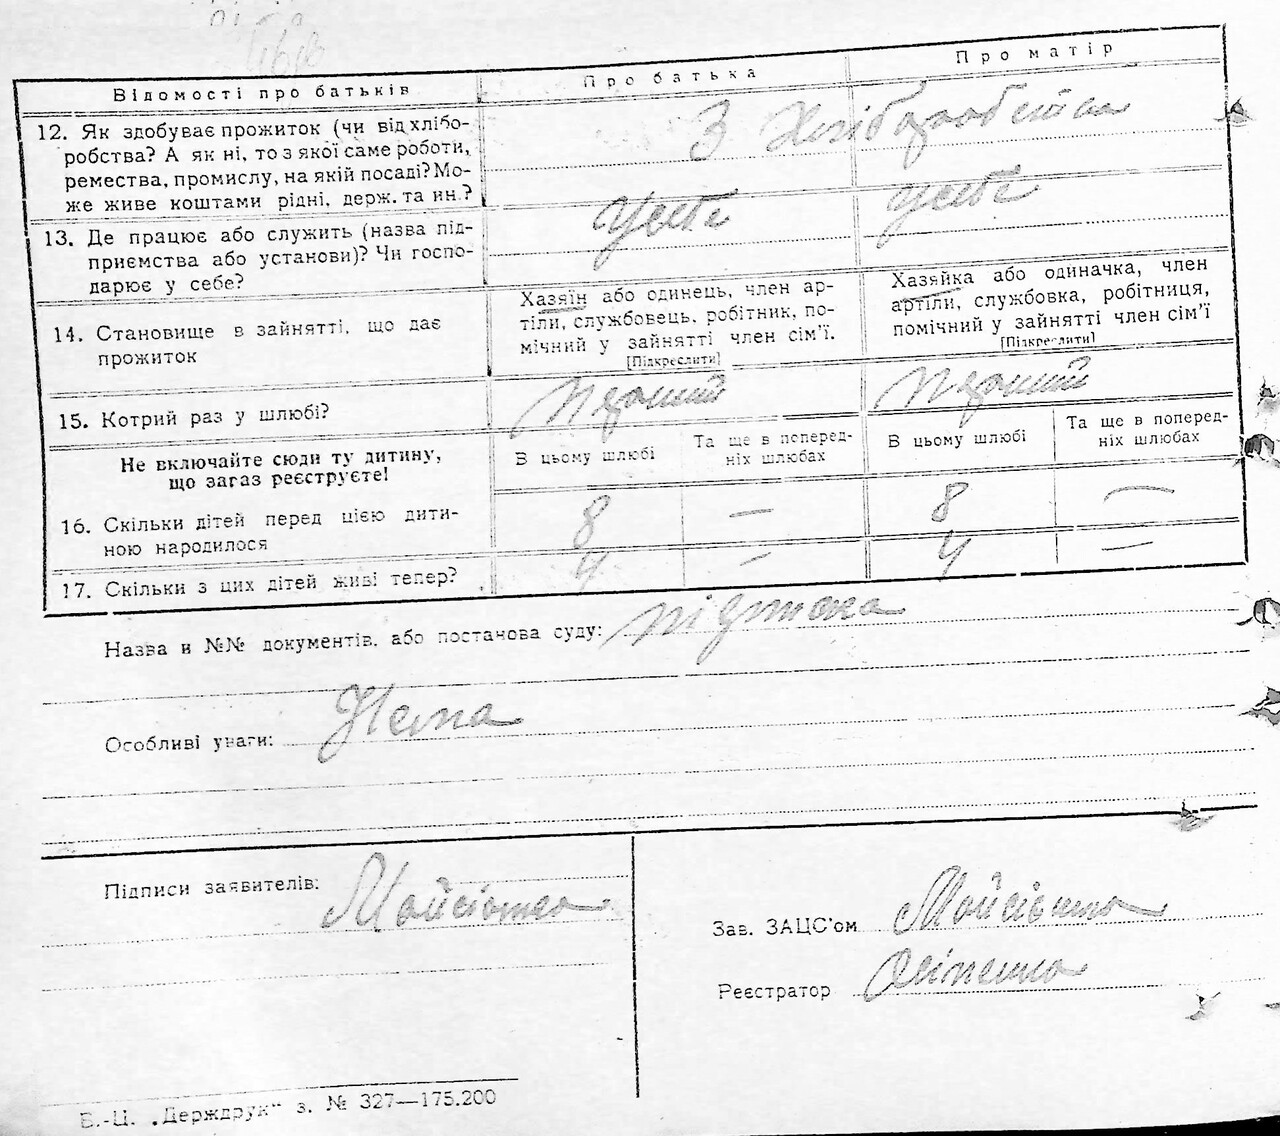 Відомості про батьків
Про батька
Про матір
12. Як здобуває прожиток (чи від хлібо-
робства? А як ні, то з якої саме роботи,
ремества, промислу, на якій посаді? Мо-
же живе коштами рідні, держ. та ин.?
З Хліборобства
13. Де працює або служить (назва під-
приємства або установи)? Чи госпо-
дарює у себе?
У себе
У себе
14. Становище в зайнятті, що дає
прожиток
Хазяїн або одинець, член ар-
тіли, службовець, робітник, по-
мічний у зайнятті член сім'ї.
[Підкреслити]
Хазяйка або одиначка, член
артіли, службовка, робітниця,
помічний у зайнятті член сім'ї
[Підкреслити]
15. Котрий раз у шлюбі?
Перший
Перший
Не включайте сюди ту дитину,
що зараз реєструєте!
В цьому шлюбі
Та ще в поперед-
ніх шлюбах
В цьому шлюбі
Та ще в поперед-
ніх шлюбах
16. Скільки дітей перед цією дити-
ною народилося
8 — 8 —
17. Скільки з цих дітей живі тепер?
4 — 4 —
Назва и №№ документів, або постанова суду: підписка
Особливі уваги: Нема
Підписи заявителів:
Зав. ЗАЦС'ом
Реєстратор
Б.-Ц. „Держдрук“ з. № 327—175.200